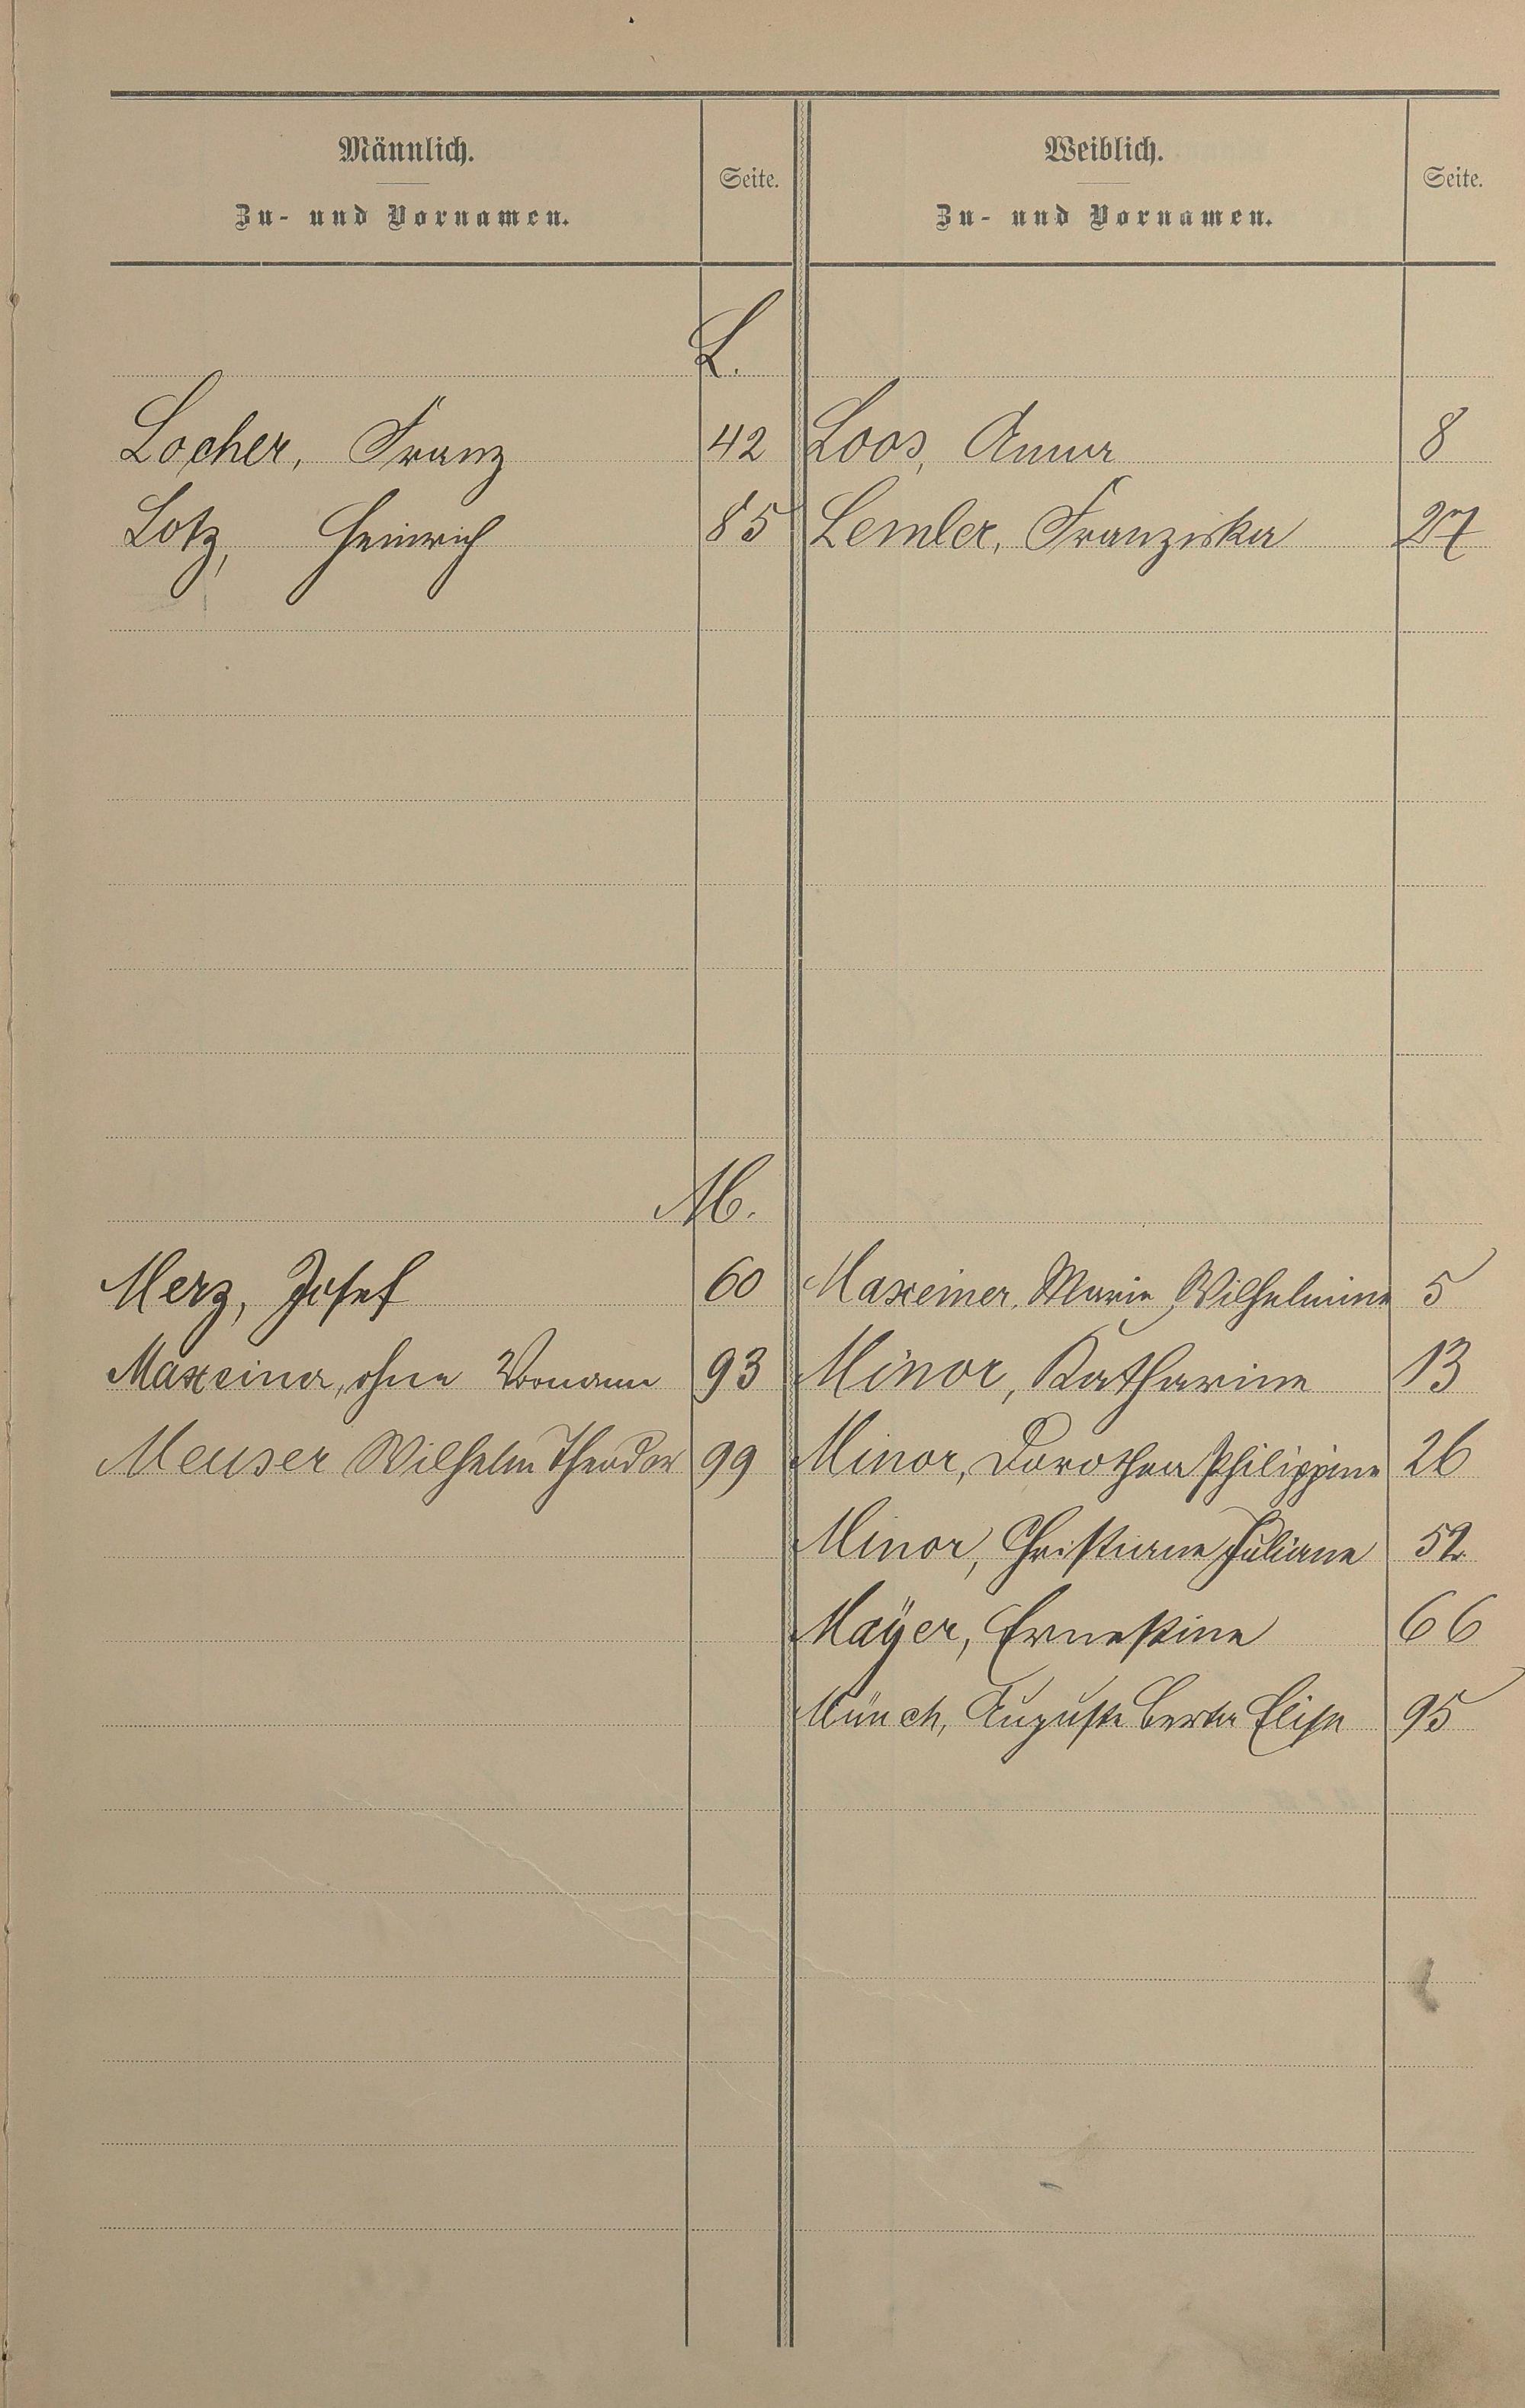 Männlich. Seite. Weiblich. Seite.
Zu- und Vornamen. Zu- und Vornamen.
L.
Locher, Franz 42 Loos, Anna 8
Lotz, Heinrich 85 Lemler, Franziska 27
M.
Merz, Josef 60 Maxeiner, Marie Wilhelmine 5
Maxeiner, ohne Vorname 93 Minor, Katharine 13
Meuser Wilhelm Theodor 99 Minor, Dorothea Philippine 26
Minor, Christiane Juliane 52
Mayer, Ernestine 66
Münch, Auguste Berta Elise 95